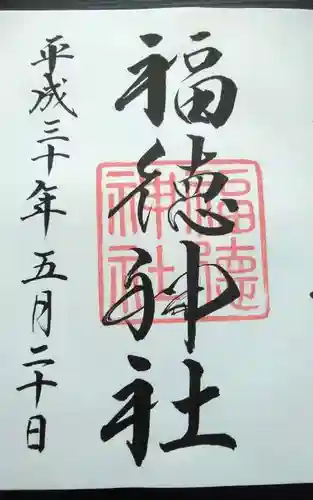 福徳神社
福徳神社
平成三十年五月二十日